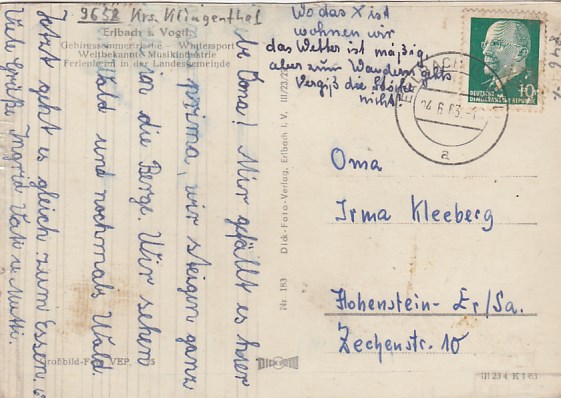 9658 Krs. Klingenthal
Erlbach i. Vogtl.
Gebirgssommerfrische – Wintersport
Weltbekannte Musikindustrie
Ferienheim in der Landesgemeinde
Wo das X ist
wohnen wir
das Wetter ist mäßig
aber zum Wandern gehts
Vergiß die Stöcke
nicht!
Oma! Mir gefällt es hier
prima, wir steigen ganz
in die Berge. Wir sehen
Wald und nochmals Wald
Jetzt geht es gleich zum Essen.
Viele Grüße Ingrid Vati u. Mutti.
Nr. 183
Dick-Foto-Verlag, Erlbach i. V.
III/23/22
DEUTSCHE
DEMOKRATISCHE REPUBLIK
10
24.6.63
a
Oma
Irma Kleeberg
Hohenstein-Er/Sa.
Zechenstr. 10
DICK
III 23 4 K 1 63